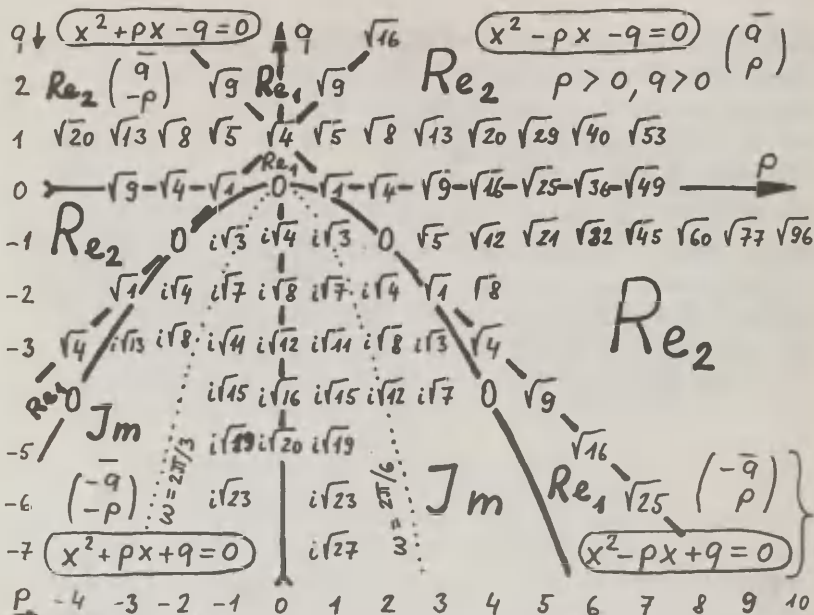 q ↓ x² + px - q = 0 q √16 x² - px - q = 0 (q̄ p)
2 Re₂ (q̄ -p) √9 Re₁ √9 Re₂ p > 0, q > 0
1 √20 √13 √8 √5 √4 √5 √8 √13 √20 √29 √40 √53
Re₁ p
0 √9 - √4 - √1 0 √1 - √4 - √9 - √16 - √25 - √36 - √49
-1 Re₂ 0 i√3 i√4 i√3 0 √5 √12 √21 √32 √45 √60 √77 √96
-2 √1 i√4 i√7 i√8 i√7 i√4 √1 √8
-3 √4 i√13 i√8 i√11 i√12 i√11 i√8 i√3 √4 Re₂
Re₁ 0 i√15 i√16 i√15 i√12 i√7 0 √9
-5 Jm i√19 i√20 i√19 √16
ω = 2π/3 ω = 2π/6 Jm
-6 (-q̄ -p) i√23 i√23 Re₁ √25 (-q̄ p)
-7 x² + px + q = 0 i√27 x² - px + q = 0
p -4 -3 -2 -1 0 1 2 3 4 5 6 7 8 9 10